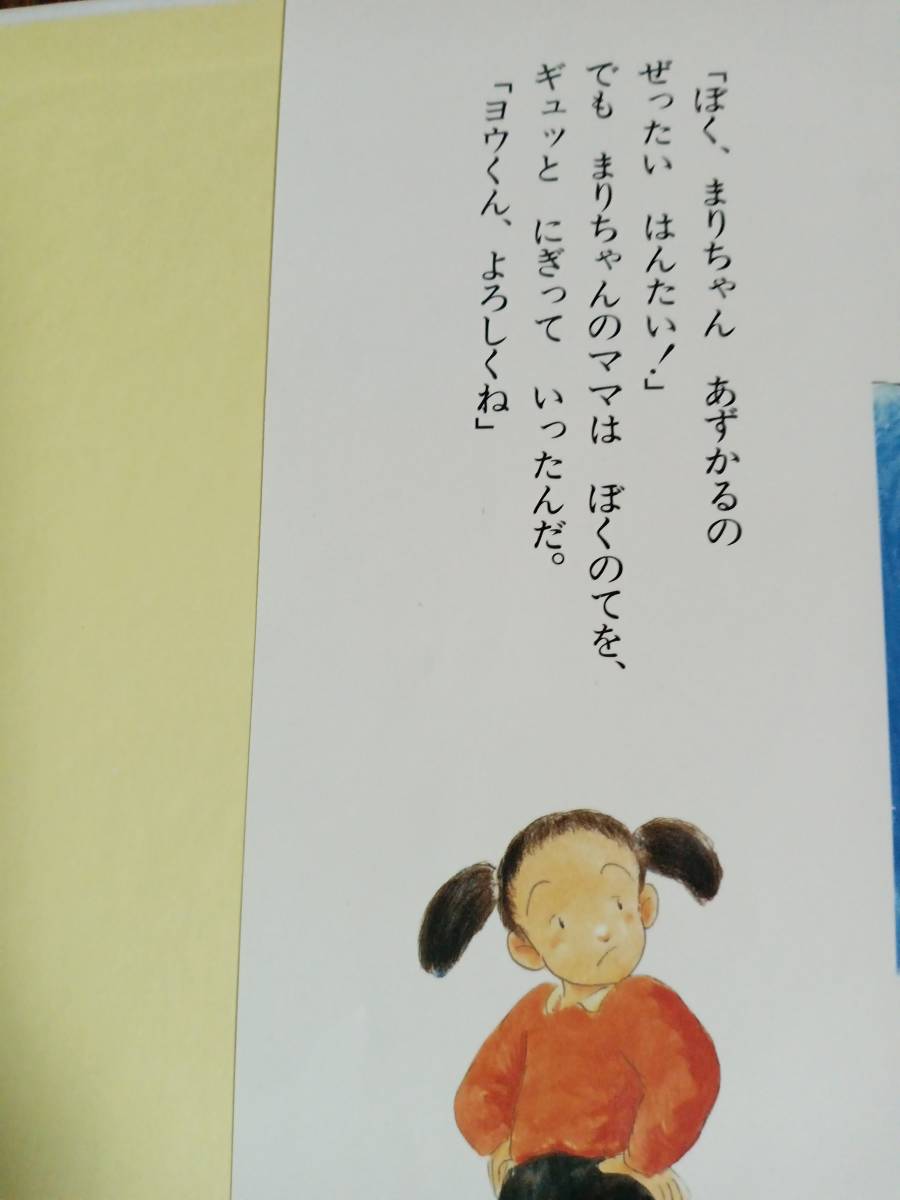 「ぼく、まりちゃん　あずかるの
ぜったい　はんたい！」
でも　まりちゃんのママは　ぼくのてを、
ギュッと　にぎって　いったんだ。
「ヨウくん、よろしくね」